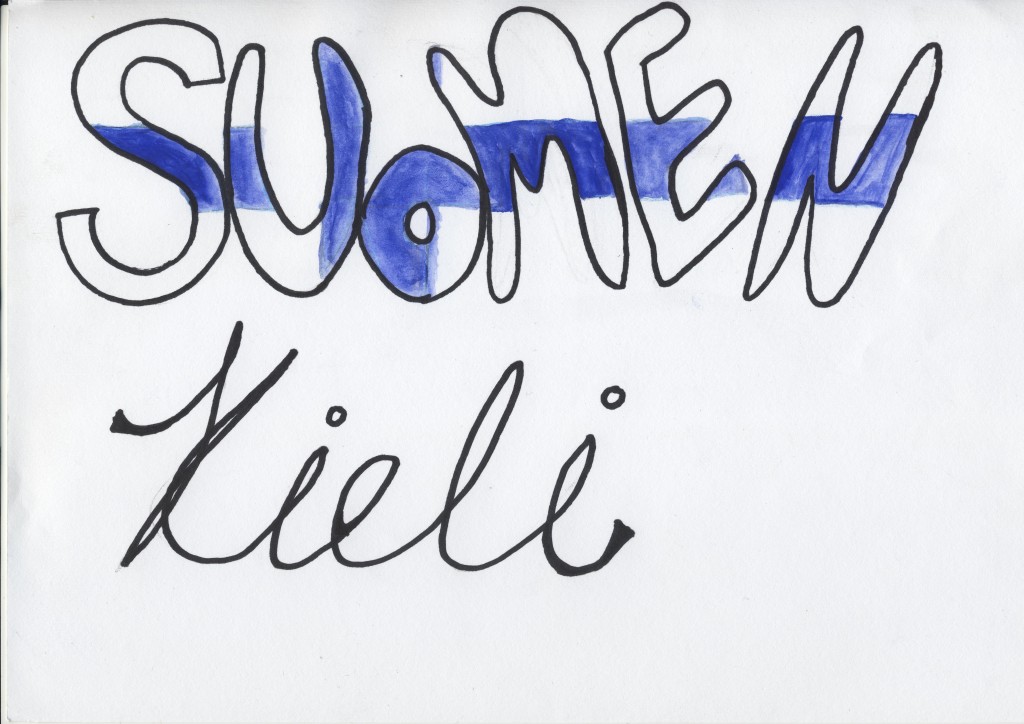 SUOMEN
Kieli